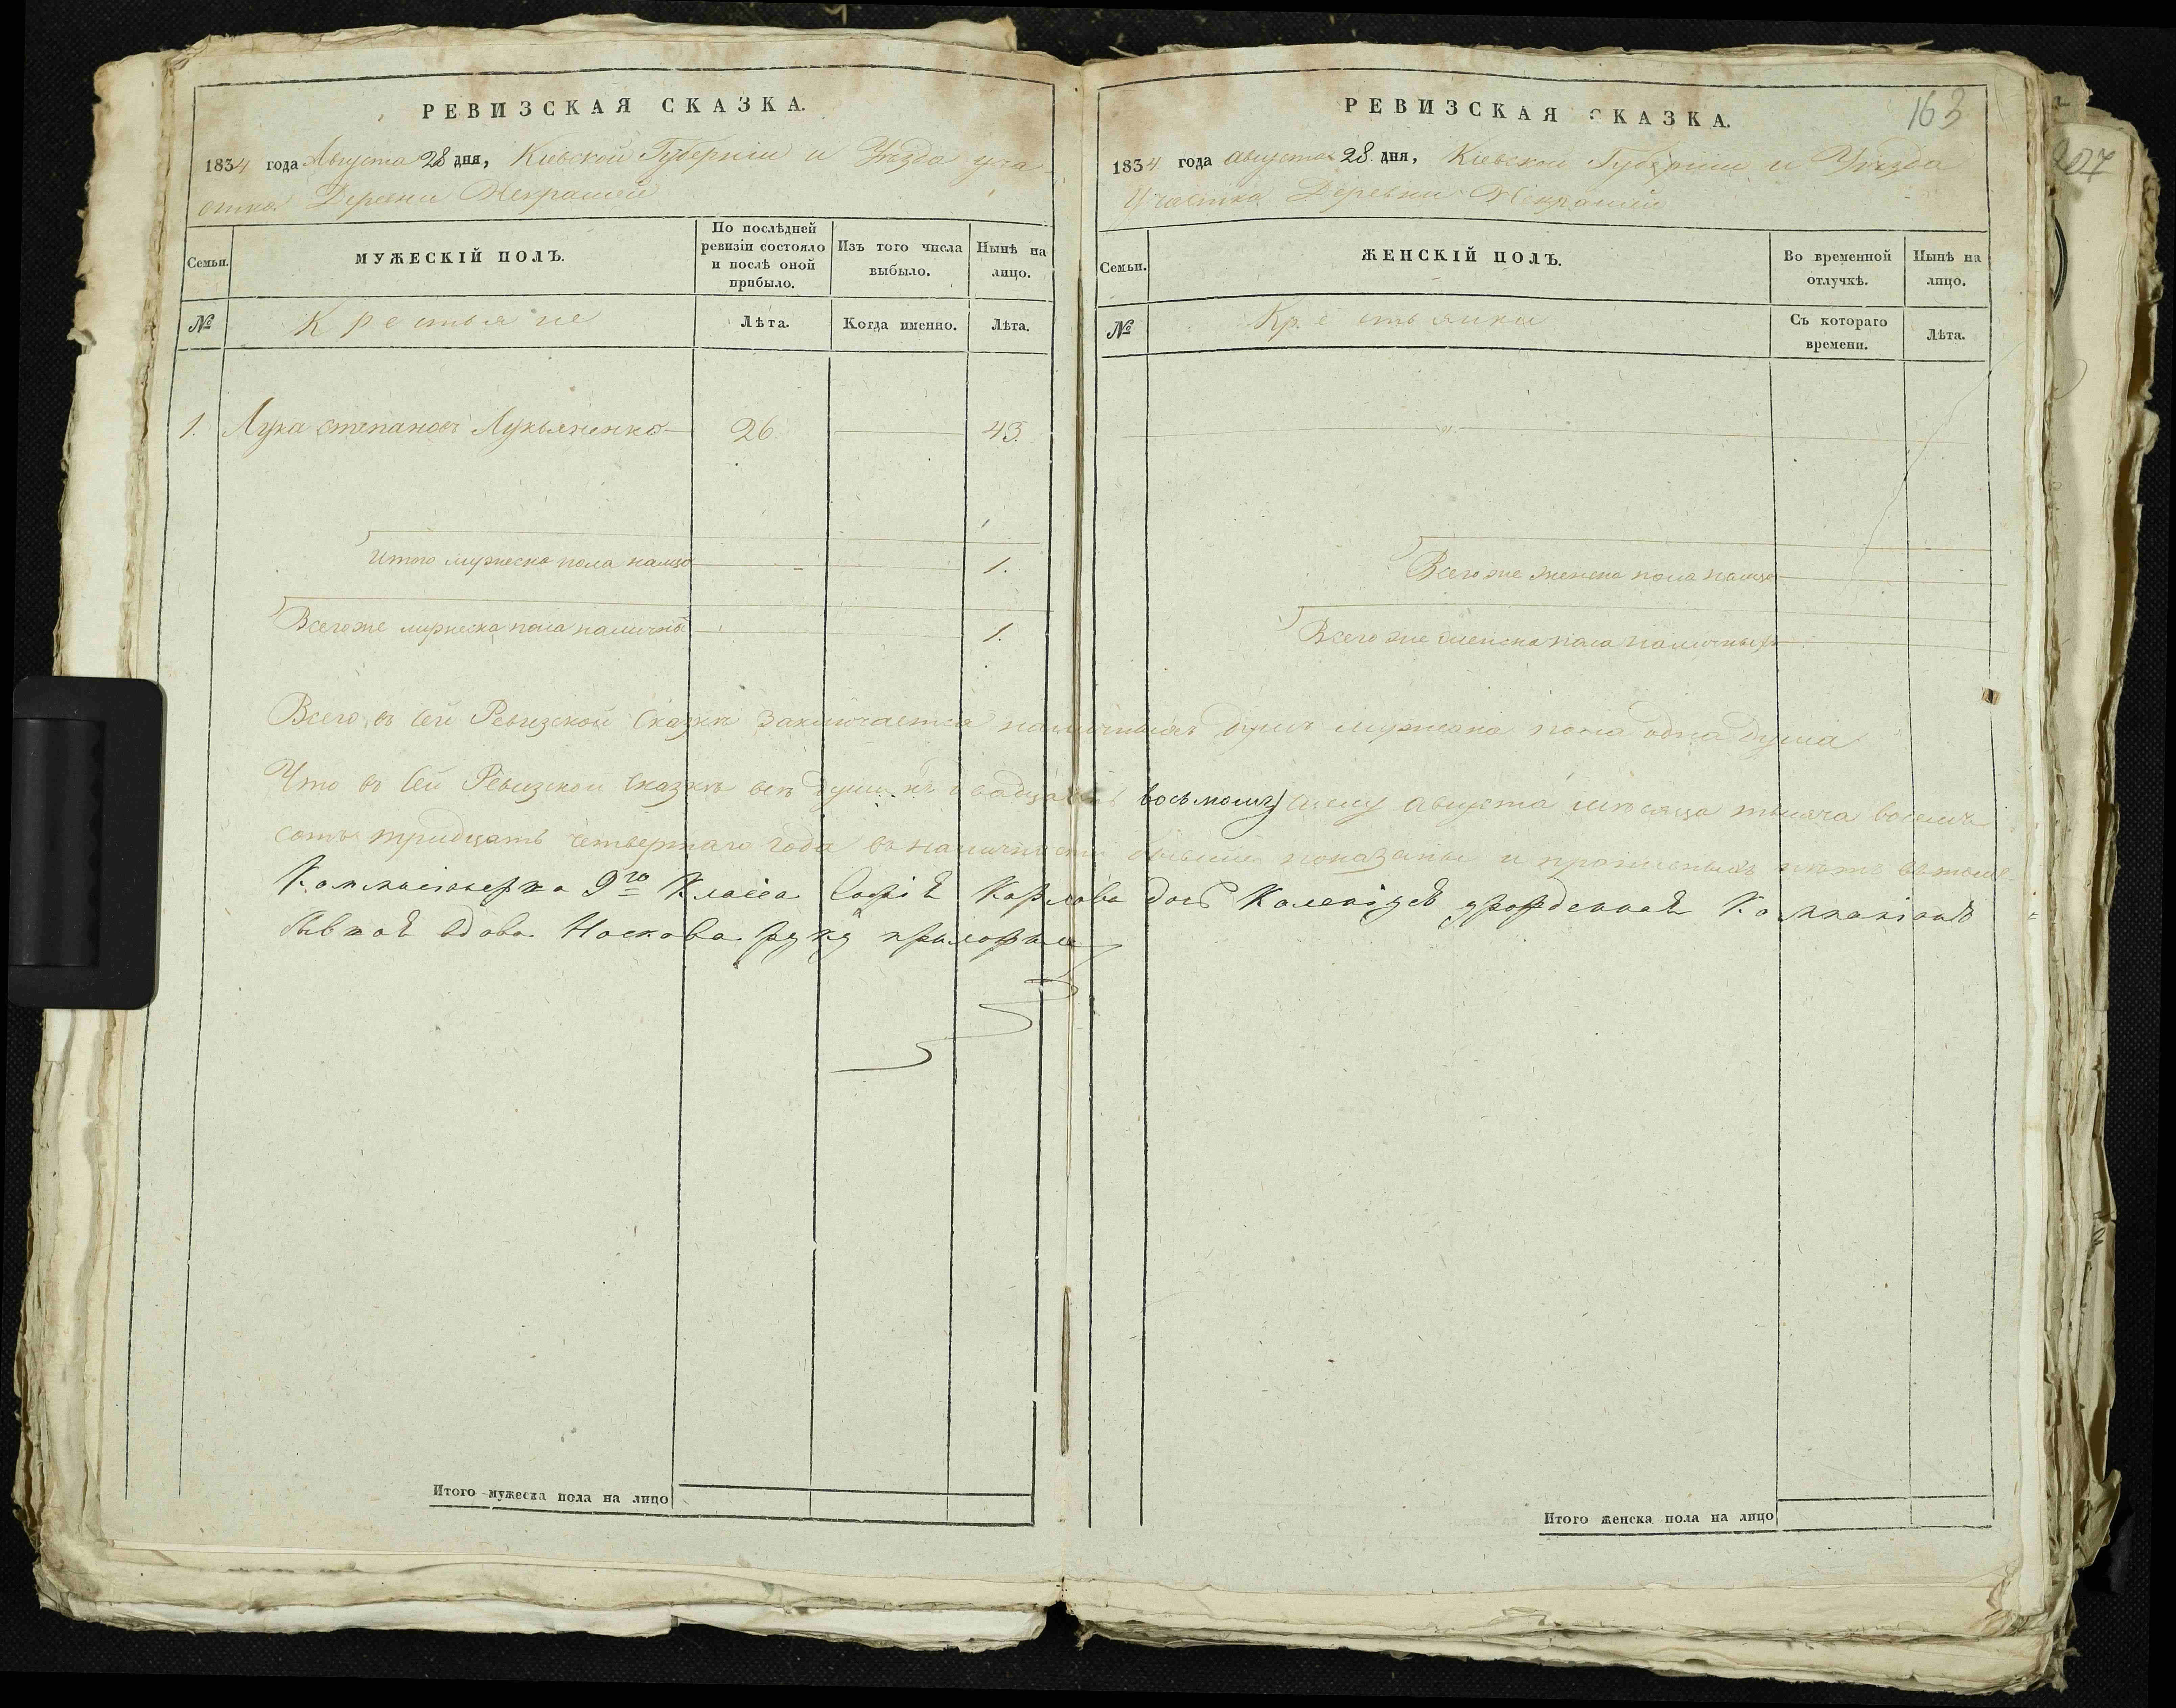 РЕВИЗСКАЯ СКАЗКА.
1834 года Августа 28 дня, Кіевской Губерніи и Уѣзда уча
стка Деревни Некрашей
Семьи.
МУЖЕСКІЙ ПОЛЪ.
По послѣдней ревизіи состояло и послѣ оной прибыло.
Изъ того числа выбыло.
Нынѣ на лицо.
№
Крестьяне
Лѣта.
Когда именно.
Лѣта.
1. Лука Степановъ Лукьяненко 26. 43.
Итого мужеска пола налицо 1.
Всего же мужеска пола наличны 1.
РЕВИЗСКАЯ СКАЗКА.
163
207
1834 года августа 28. дня, Кіевской Губерніи и Уѣзда
Участка Деревни Некрашей
Семьи.
ЖЕНСКІЙ ПОЛЪ.
Во временной отлучкѣ.
Нынѣ на лицо.
№
Крестьянки
Съ котораго времени.
Лѣта.
Всего же женска пола налицо
Всего же женска пола наличныхъ
Всего въ сей Ревизской Сказкѣ Заключается наличныхъ душъ мужеска пола одна душа
Что въ сей Ревизской сказкѣ всѣ души къ двадцать восьмому числу августа мѣсяца тысяча восемь
сотъ тридцать четвертаго года въ наличности бывшие показаны и
Коммисионерка 9го Класса Софія Карлова дочь урожденная
вдова Носкова руку приложила
Итого мужеска пола на лицо
Итого женска пола на лицо